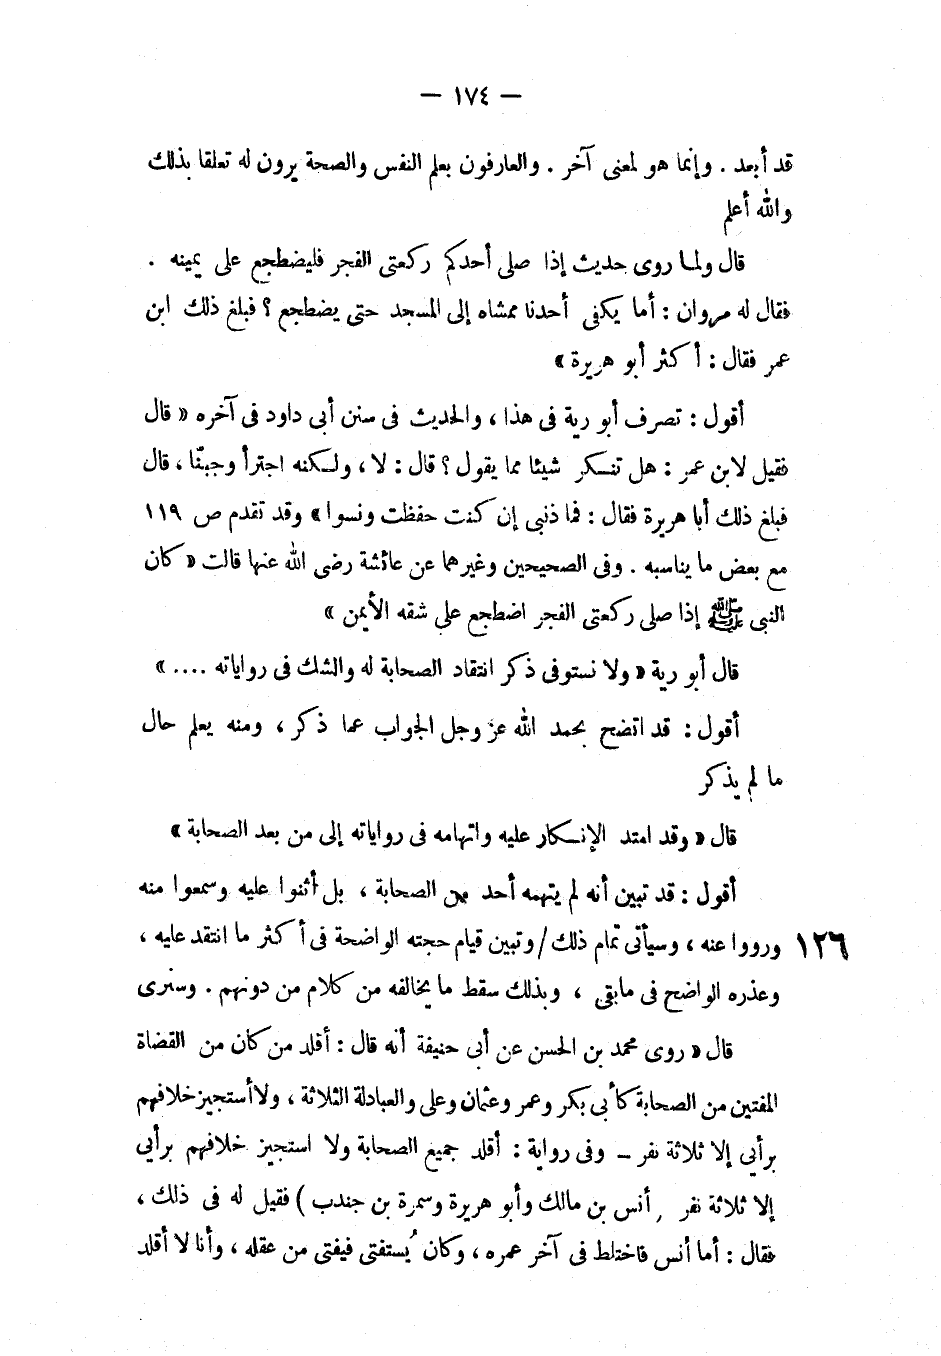 — ١٧٤ —
قد أبعد . وإنما هو لمعنى آخر . والعارفون بعلم النفس والصحة يرون له تعلقا بذلك
والله أعلم
قال ولما روى حديث إذا صلى أحدكم ركعتى الفجر فليضطجع على يمينه .
فقال له مروان : أما يكفى أحدنا ممشاه إلى المسجد حتى يضطجع ؟ فبلغ ذلك ابن
عمر فقال : أكثر أبو هريرة »
أقول : تصرف أبو رية فى هذا ، والحديث فى سنن أبى داود فى آخره « قال
فقيل لابن عمر : هل تنكر شيئا مما يقول ؟ قال : لا ، ولكنه اجترأ وجبنّا ، قال
فبلغ ذلك أبا هريرة فقال : فما ذنبى إن كنت حفظت ونسوا » وقد تقدم ص ١١٩
مع بعض ما يناسبه . وفى الصحيحين وغيرهما عن عائشة رضى الله عنها قالت « كان
النبى ﷺ إذا صلى ركعتى الفجر اضطجع على شقه الأيمن »
قال أبو رية « ولا نستوفى ذكر انتقاد الصحابة له والشك فى رواياته .... »
أقول : قد اتضح بحمد الله عز وجل الجواب عما ذكر ، ومنه يعلم حال
ما لم يذكر
قال « وقد امتد الإنكار عليه واتهامه فى رواياته إلى من بعد الصحابة »
أقول : قد تبين أنه لم يتهمه أحد من الصحابة ، بل أثنوا عليه وسمعوا منه
ورووا عنه ، وسيأتى تمام ذلك / وتبين قيام حجته الواضحة فى أكثر ما انتقد عليه ، ١٢٦
وعذره الواضح فى مابقى ، وبذلك سقط ما يخالفه من كلام من دونهم . وسنرى
قال « روى محمد بن الحسن عن أبى حنيفة أنه قال : أقلد من كان من القضاة
المفتين من الصحابة كأبى بكر وعمر وعثمان وعلى والعبادلة الثلاثة ، ولا أستجيز خلافهم
برأيى إلا ثلاثة نفر – وفى رواية : أقلد جميع الصحابة ولا استجيز خلافهم برأيى
إلا ثلاثة نفر ( أنس بن مالك وأبو هريرة وسمرة بن جندب ) فقيل له فى ذلك ،
فقال : أما أنس فاختلط فى آخر عمره ، وكان يُستفتى فيفتى من عقله ، وأنا لا أقلد